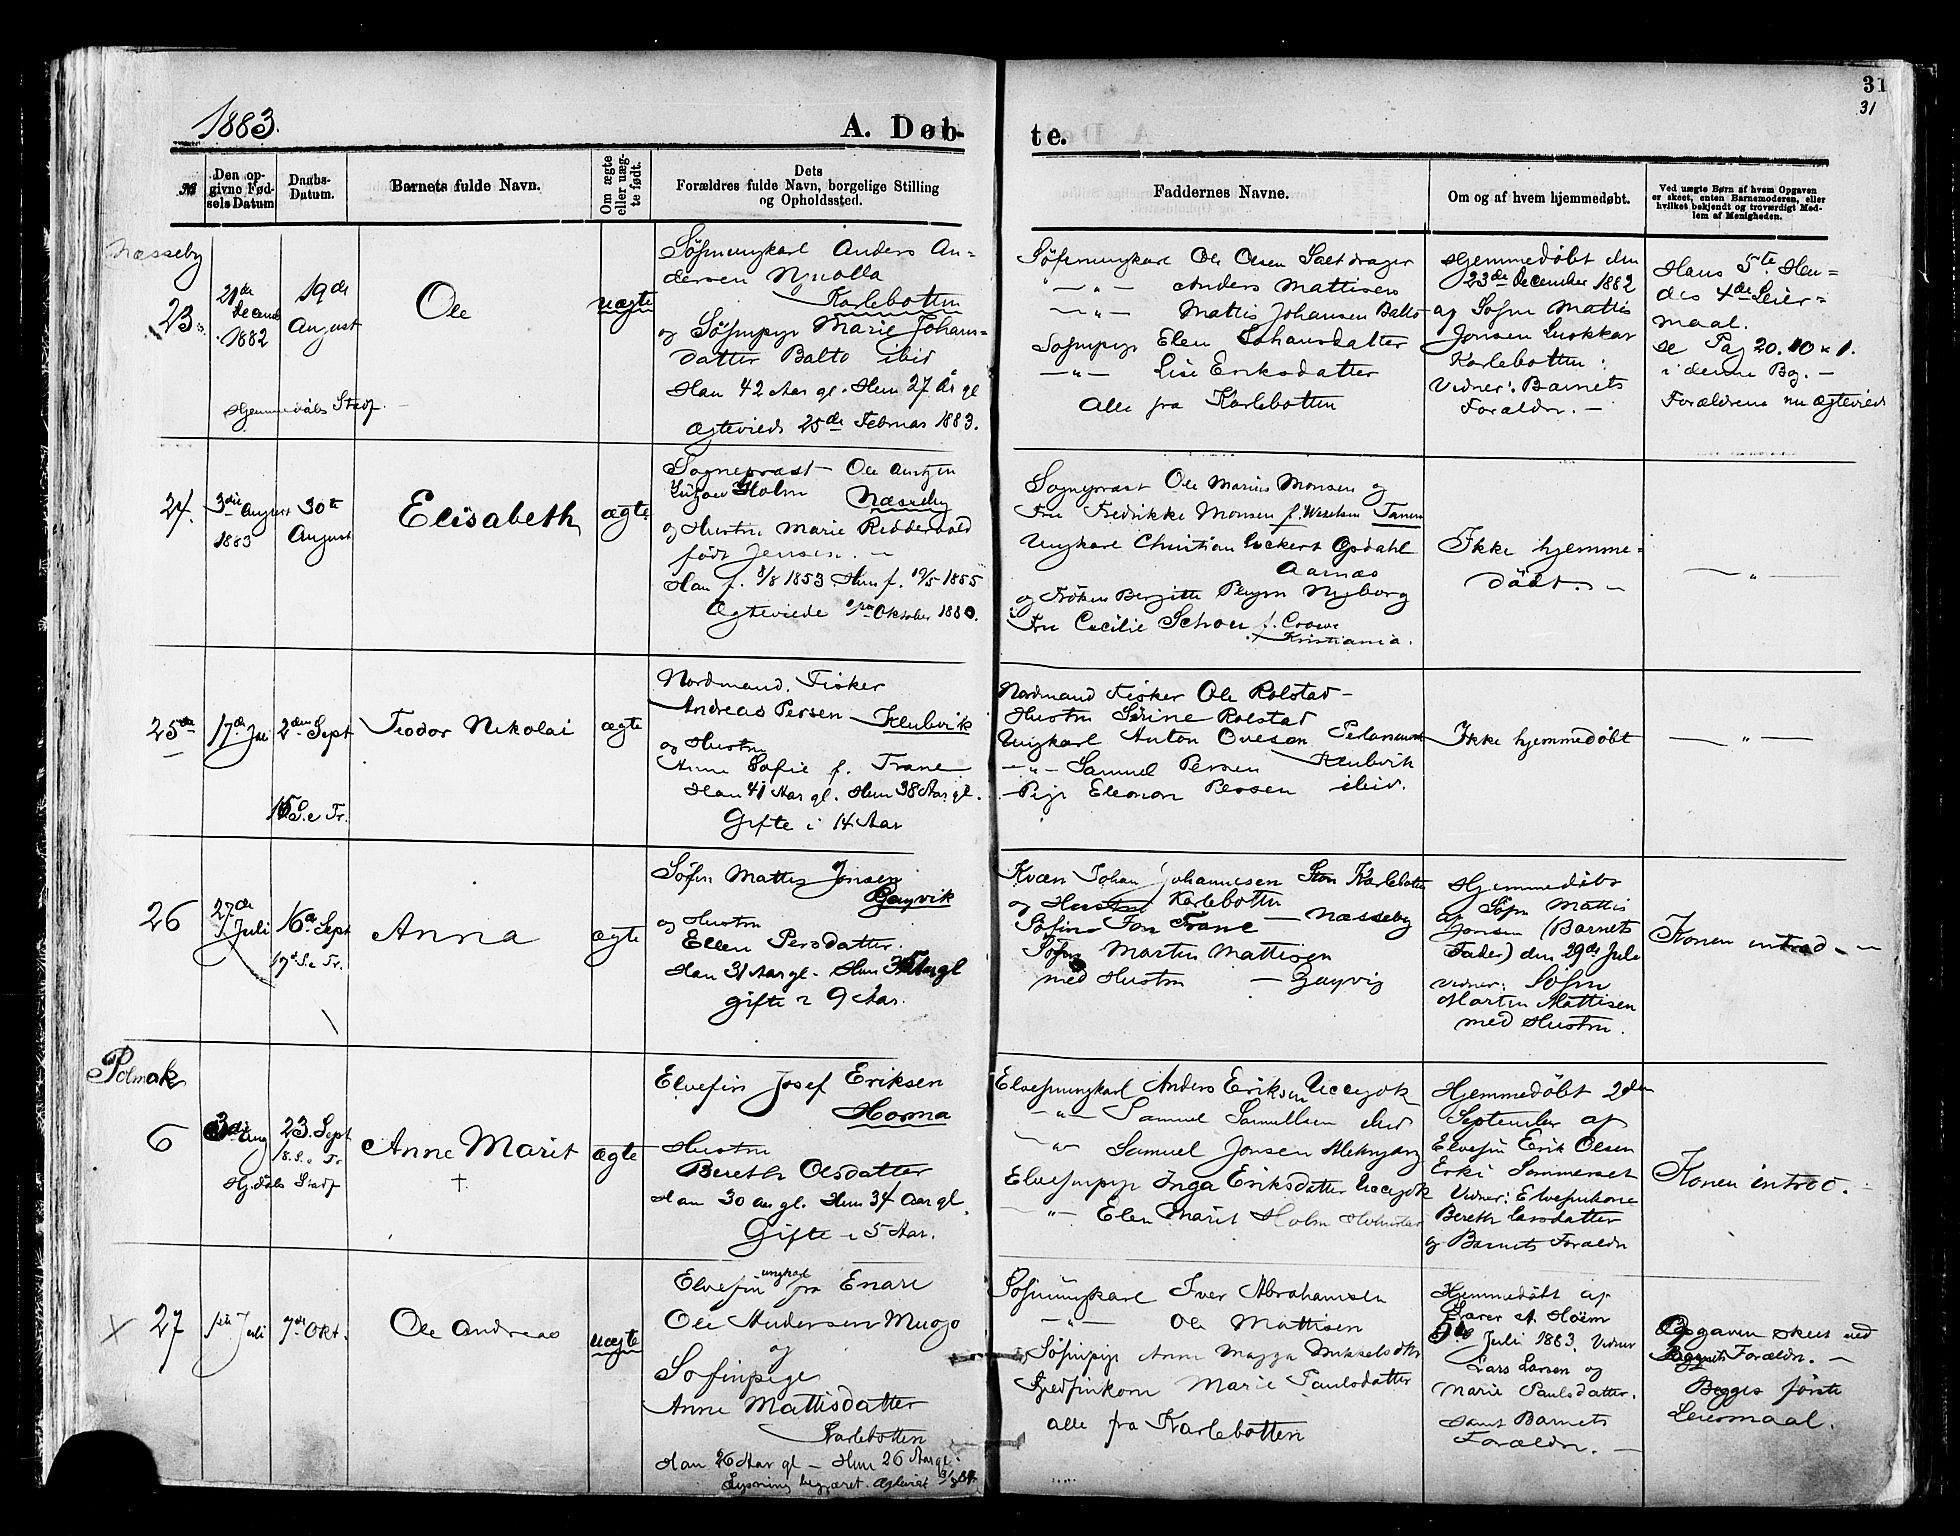 31
31
1883.
A. Døb-
te.
№
Den op-
givne Fød-
sels Datum
Daabs-
Datum.
Barnets fulde Navn.
Om ægte
eller uæg-
te født.
Dets
Forældres fulde Navn, borgelige Stilling
og Opholdssted.
Faddernes Navne.
Om og af hvem hjemmedøbt.
Ved uægte Børn af hvem Opgaven
er skeet, enten Barnemoderen, eller
hvilket bekjendt og troværdigt Med-
lem af Menigheden.
Næsseby
23
21de
Decemb
1882
19de
August
Hjemmedåbs Stadf.
Ole
uægte
Søfinungkarl Anders An-
dersen Nualla
Karlebotten
og Søfinpige Marie Johans-
datter Balto ibid
Han 42 Aar gl. Hun 27 År gl
Ægteviede 25de Februar 1883.
Søfinungkarl Ole Olsen Saltdrager
— " — Anders Mattisen
— " — Mattis Johansen Balto
Søfinpige Elen Johansdatter
— " — Lise Eriksdatter
Alle fra Karlebotten
Hjemmedøbt den
23de December 1882
af Søfin Mattis
Jonsen Luokkar
Karlebotten:
Vidner: Barnets
Forældre. —
Hans 5te Hen-
des 4de Leier-
maal.
Se Pag 20. 10 x 1.
i denne Bog. —
Forældrene nu Ægteviede
24.
3die August
1883
30te
August
Elisabeth
ægte
Sognepræst Ole Arntzen
Lützow Holm Næsseby
og Hustru Marie Reddervold
født Jensen. —
Han f. 8/8 1853 Hun f. 19/5 1855
Ægteviede Oktober 1880.
Sognepræst Ole Marius Monsen og
Fru Fredrikke Monsen f. Weselsen Tanen
Ungkarl Christian Lockert Opdahl
Aarnæs
og Frøken Bergitte Nyborg
Fru Cecilie Schou f. Crowe
Kristiania.
Ikke hjemme-
døbt. —
— " —
25de
17de Juli
2den Sept
15 S. e Tr.
Teodor Nikolai
ægte
Nordmand, Fisker
Andreas Persen Klubvik
og Hustru
Anne Sofie f. Trane
Han 41 Aar gl. Hun 38 Aar gl.
Gifte i 14 Aar
Nordmand Fisker Ole Rolstad —
Hustru Sørine Rolstad
Ungkarl Anton Ovesen
— " — Samuel Persen Klubvik
Pige Eleonora Persen ibid.
Ikke hjemmedøbt
— " —
26
27de
Juli
16de Sept
17de S. e Tr.
Anna
ægte
Søfin Mattis Jonsen
og Hustru
Ellen Persdatter.
Han 31 Aar gl. Hun Aar gl
gifte i 9 Aar.
Kvæn Johan Johannesen Karlebotten
og Hustru Karlebotten
Søfin Jon Trane — Næsseby
Søfin Martin Mattisen
med Hustru —
Hjemmedøbt
af Søfin Mattis
Jonsen (Barnets
Fader) den 29de Juli
Vidner: Søfin
Martin Mattisen
med Hustru.
Konen introd. —
Polmak
6
3die Aug
23. Sept
18. S. e Tr
Hj. dåbs Stadf
Anne Marit
†
ægte
Elvefin Josef Eriksen
Horma
Hustru
Bereth Olsdatter
Han 30 Aar gl. Hun 34 Aar gl.
Gifte i 5 Aar.
Elvefinungkarl Anders Eriksen Uccejok
— " — Samuel Samuelsen ibid
— " — Samuel Jonsen
Elvefinpige Inga Eriksdatter Uccejok
— " — Elen Marit Holm
Hjemmedøbt 2den
September af
Elvefin Erik Olsen
Erki Sommerset
Vidner: Elvefinkone
Bereth Larsdatter
og Barnets Forældre
Konen introd.
X 27
Juli
7de Okt.
Ole Andreas
uægte
Elvefin ungkarl fra Enare
Ole Andersen Muojo
og
Søfinpige
Anne Mattisdatter
Karlebotten
Han 26 Aar gl — Hun 26 Aar gl.
Lysning begjæret. Ægteviet
Søfinungkarl Iver Abrahamsen
— " — Ole Mattisen
Søfinpige Anne Magga Mikkelsdtr
Marie Paulsdatter
alle fra Karlebotten
Hjemmedøbt af
Lærer A. Hoëm
Juli 1883. Vidner
Lars Larsen og
Marie Paulsdatter.
samt Barnets
Forældre. —
Opgaven skeet ved
Barnets Forældre. —
Begges første
Leiermaal.